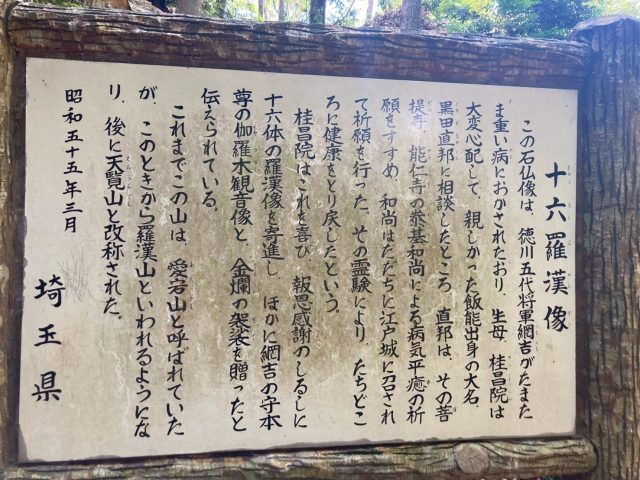 十六羅漢像
この石仏像は、徳川五代将軍綱吉がたまた
ま重い病におかされたおり、生母、桂昌院は
大変心配して、親しかった飯能出身の大名
黒田直邦に相談したところ、直邦は、その菩
提寺、能仁寺の泰基和尚による病気平癒の祈
願をすすめ、和尚はただちに江戸城に召され
て祈願を行った。その霊験により、たちどこ
ろに健康をとり戻したという。
桂昌院はこれを喜び、報恩感謝のしるしに
十六体の羅漢像を寄進し、ほかに綱吉の守本
尊の伽羅木観音像と、金襴の袈裟を贈ったと
伝えられている。
これまでこの山は、愛宕山と呼ばれていた
が、このときから羅漢山といわれるようにな
り、後に天覧山と改称された。
昭和五十五年三月
埼玉県